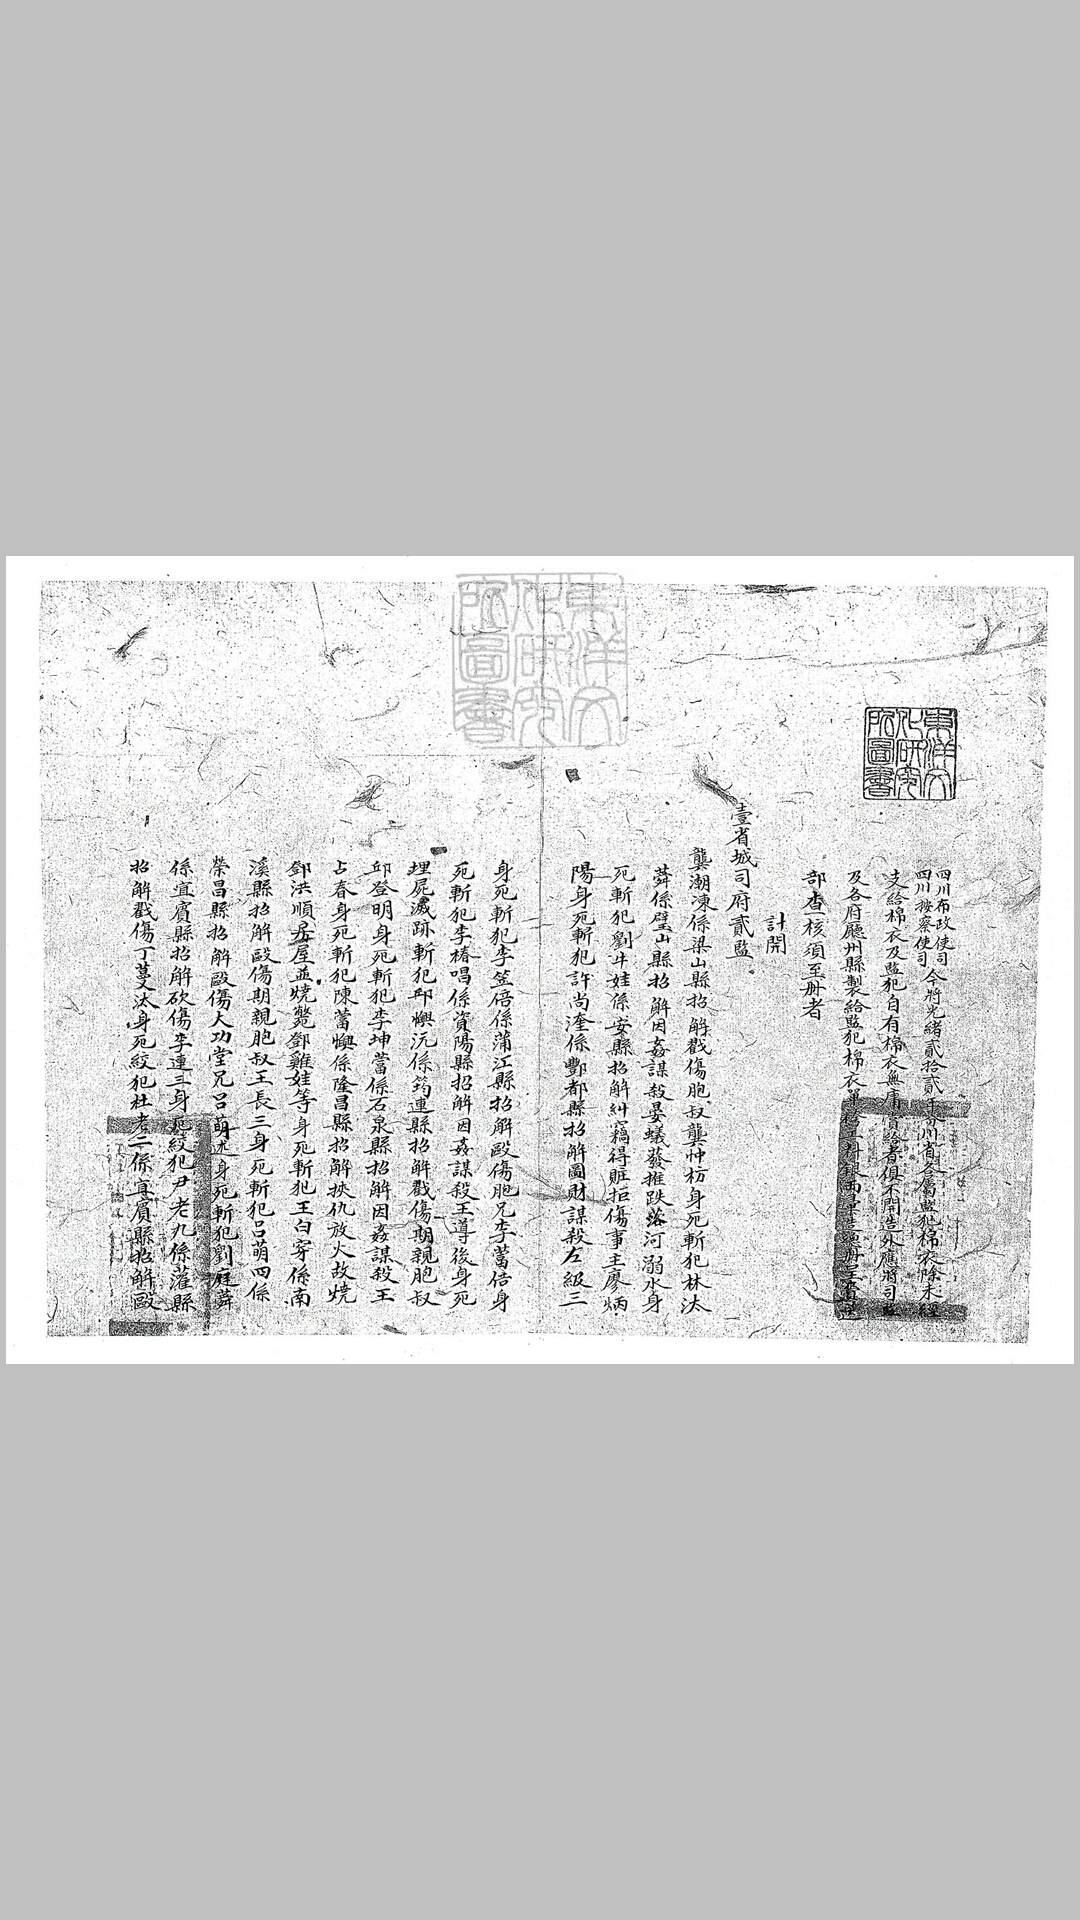 東洋文化研究所圖書
四川布政使司
四川按察使司今將光緒貳拾貳年川省各屬監犯棉衣除未經
支給棉衣及監犯自有棉衣無庸資給者俱不開造外應將司監
及各府廳州縣製給監犯棉衣單工料銀兩彙造清冊呈送
部查核須至冊者
計開
壹省城司府貳監
龔潮凍係梁山縣招解戳傷胞叔龔忡枋身死斬犯林汰
蕣係璧山縣招解因姦謀殺晏蟻發推跌落河溺水身
死斬犯劉牛娃係安縣招解糾竊得賍拒傷事主廖炳
陽身死斬犯許尚溎係酆都縣招解圖財謀殺左級三
身死斬犯李笠倍係蒲江縣招解毆傷胞兄李蓄倍身
死斬犯李椿唱係資陽縣招解因姦謀殺王導後身死
埋屍滅跡斬犯邱懊沅係筠連縣招解戳傷期親胞叔
邱登明身死斬犯李坤蓄係石泉縣招解因姦謀殺王
占春身死斬犯陳蓄懊係隆昌縣招解挾仇放火故燒
鄧洪順房屋並燒斃鄧雞娃等身死斬犯王白穿係南
溪縣招解毆傷期親胞叔王長三身死斬犯呂萌四係
榮昌縣招解毆傷大功堂兄呂萌朩身死斬犯劉庭蕣
係宜賓縣招解砍傷李連三身死絞犯尹老九係灌縣
招解戳傷丁蔓汰身死絞犯杜老二係宜賓縣招解毆
東洋文化研究所圖書